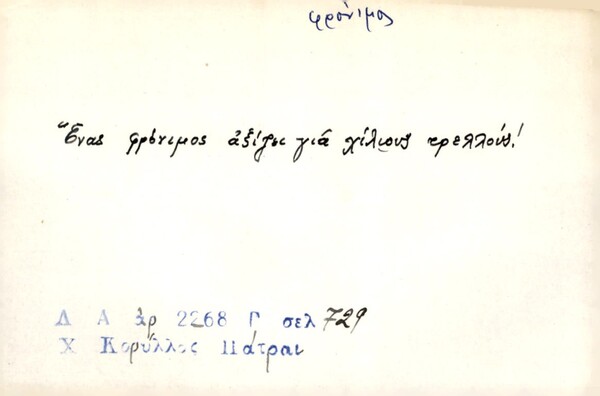 φρόνιμος
Ἕνας φρόνιμος ἀξίζει γιά χίλιους τρελλούς!
Λ Α ἀρ 2268 Γ σελ 729
Χ Κορύλλος Πάτραι